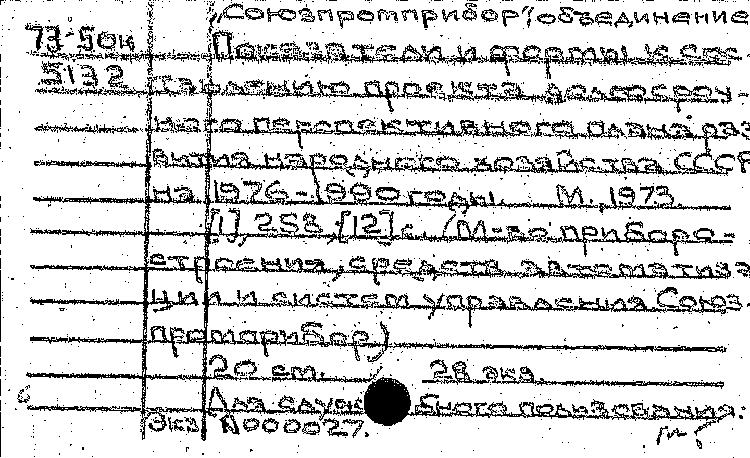 „Союзпромприбор“, объединение
73-50к Показатели и формы к сос-
5132 тавлению проекта долгосроч-
ного перспективного плана раз
вития народного хозяйства СССР
на 1976-1990 годы. М., 1973.
[1], 253, [12] с. (М-во приборо-
строения, средств автоматиза
ции и систем управления Союз-
промприбор)
20 см. 28 экз.
Для служебного пользования.
Экз. №000027.